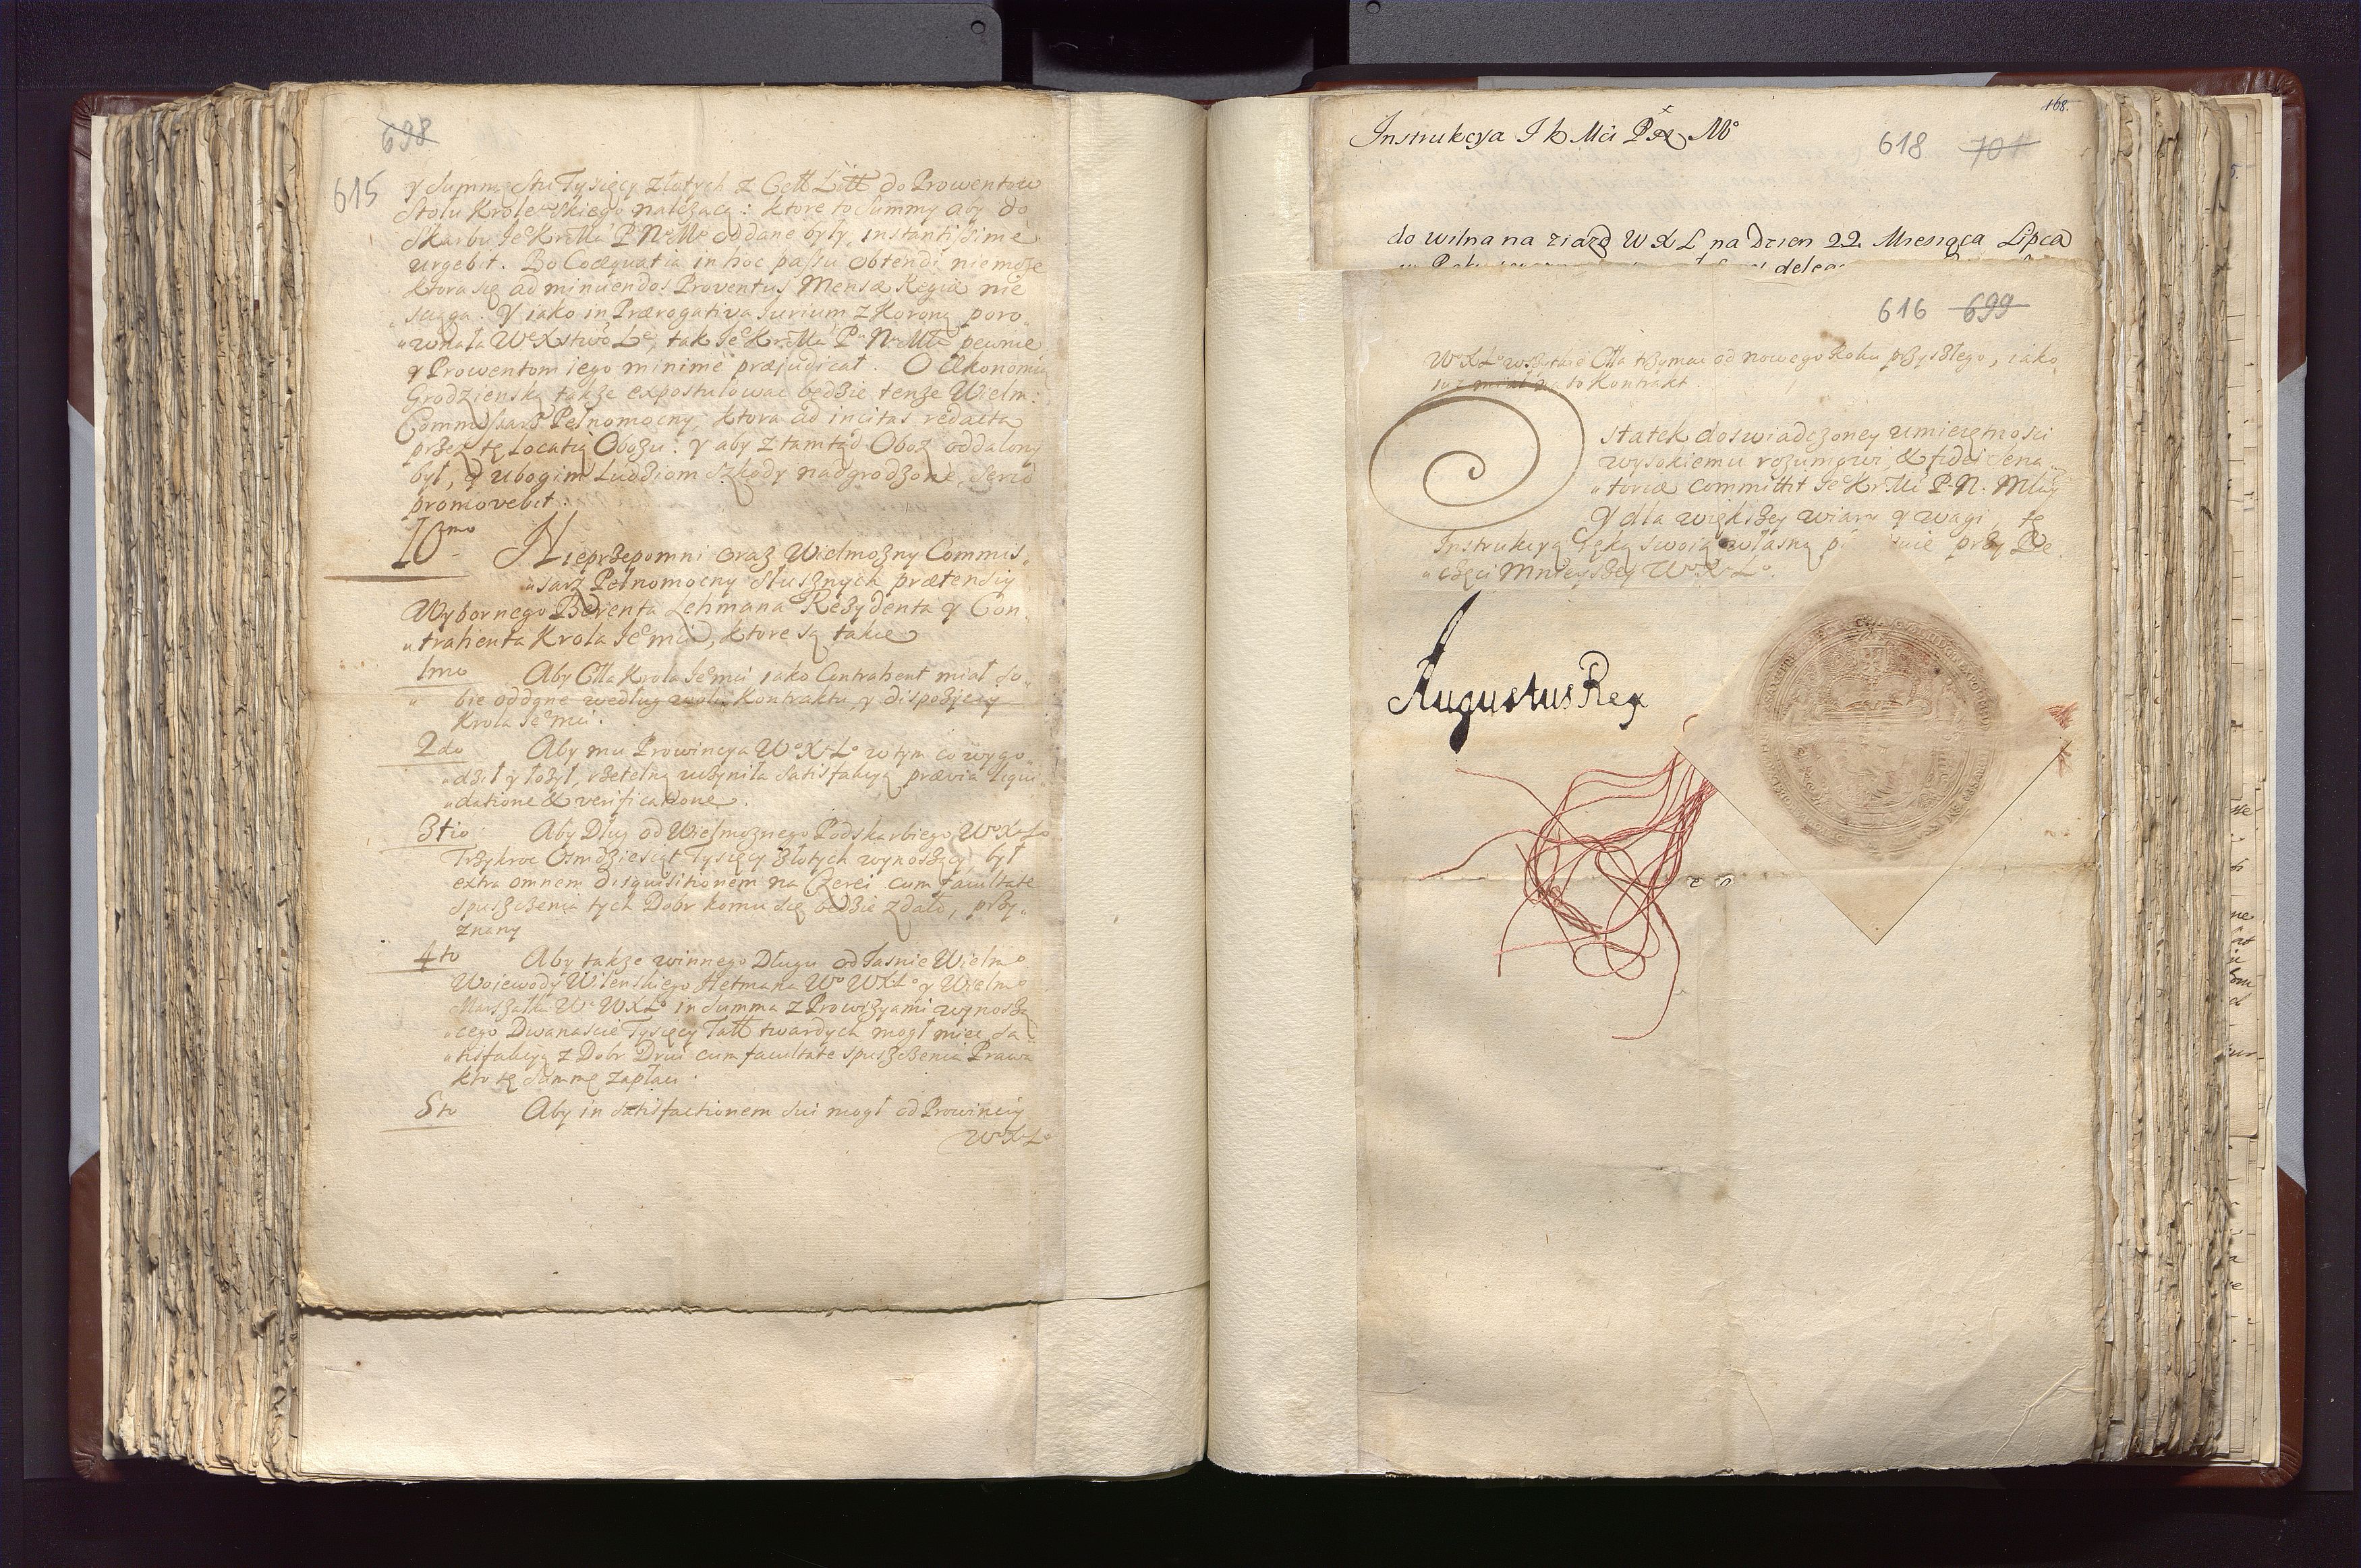 698
615
y Summę Stu Tysięcy Złotych z Cełł Litt do Prowentow
Stołu Krolewskiego należącą: ktore to Summy aby do
Skarbu Je Kr Mci P. N. Mo oddane były, instantissime
urgebit. Bo Coæquatia in hoc passu obtendi niemoże
ktora się ad minuendos Proventus Mensæ Regiæ nie
sciąga. Y iako in Prærogativa Jurium z Koroną poro„
„wnała W° X stwo L°, tak Je Kr Mci P. N. Młu pewnie
y Prowentom iego minime præjudicat. O Œkonomią
Grodzienską także expostulować będzie tenże Wielm:
Commissarz Pełnomocny, ktora ad incitas redacta
przez tę Locatią Obozu: y aby ztamtąd Oboz oddalony
był, y ubogim Ludziom szkody nadgrodzone, serio
promovebit.
10mo Nieprzepomni oraz Wielmożny Commis„
„sarz Pełnomocny słusznych prætensiy
Wybornego Berenta Lehmana Rezydenta y Con„
„trahenta Krola Je°mci, ktore są takie
1mo Aby Cła Krola Je°mci iako Contrahent miał so„
„bie oddane według woli Kontraktu y dispozycyi
Krola Je°mci.
2do Aby mu Prowincya W° X L° w tym co wygo„
„dził y łożył, rzetelną uczyniła satisfakcyą prævia liqui„
„datione & verificatione.
3tio Aby Dług od Wielmożnego Podskarbiego W° X L°
Trzykroc Osmdziesiąt Tysięcy Złotych wynoszący był
extra omnem disquisitionem na Czerei cum facultate
spuszczenia tych Dobr komu się będzie zdało, przy„
znany
4to Aby także winnego Długu od Jasnie Wielm°
Wojewody Wilenskiego Hetmana W° WXL° y Wielm°
Marszałka W° WXL° in Summa z Prowizyami wynoszą
„cego Dwanascie Tysięcy Tall twardych mogł miec sa„
„tisfakcyą z Dobr Drui cum facultate spuszczenia Prawa
kto tę Summę zapłaci.
5to Aby in satisfactionem sui mogł od Prowincyi
W° X L°
168.
Instrukcya J K Mci P N Mo
618 701
do Wilna na ziazd W X L na Dzien 22 Miesiąca Lipca
616 699
W° X L° wszytkie Cła trzymac od nowego Roku przyszłego, iako
iuz miał na to Kontrakt.
Ostatek doswiadczoney umieiętnosci
wysokiemu rozumowi, & fidei Sena„
„toriæ committit Je Kr Mć P. N. Mły
Y dla większey wiary y wagi, tę
Instrukcyą ręką swoią własną przy Pie„
„częci Mnieyszey W° X L°.
Augustus Rex